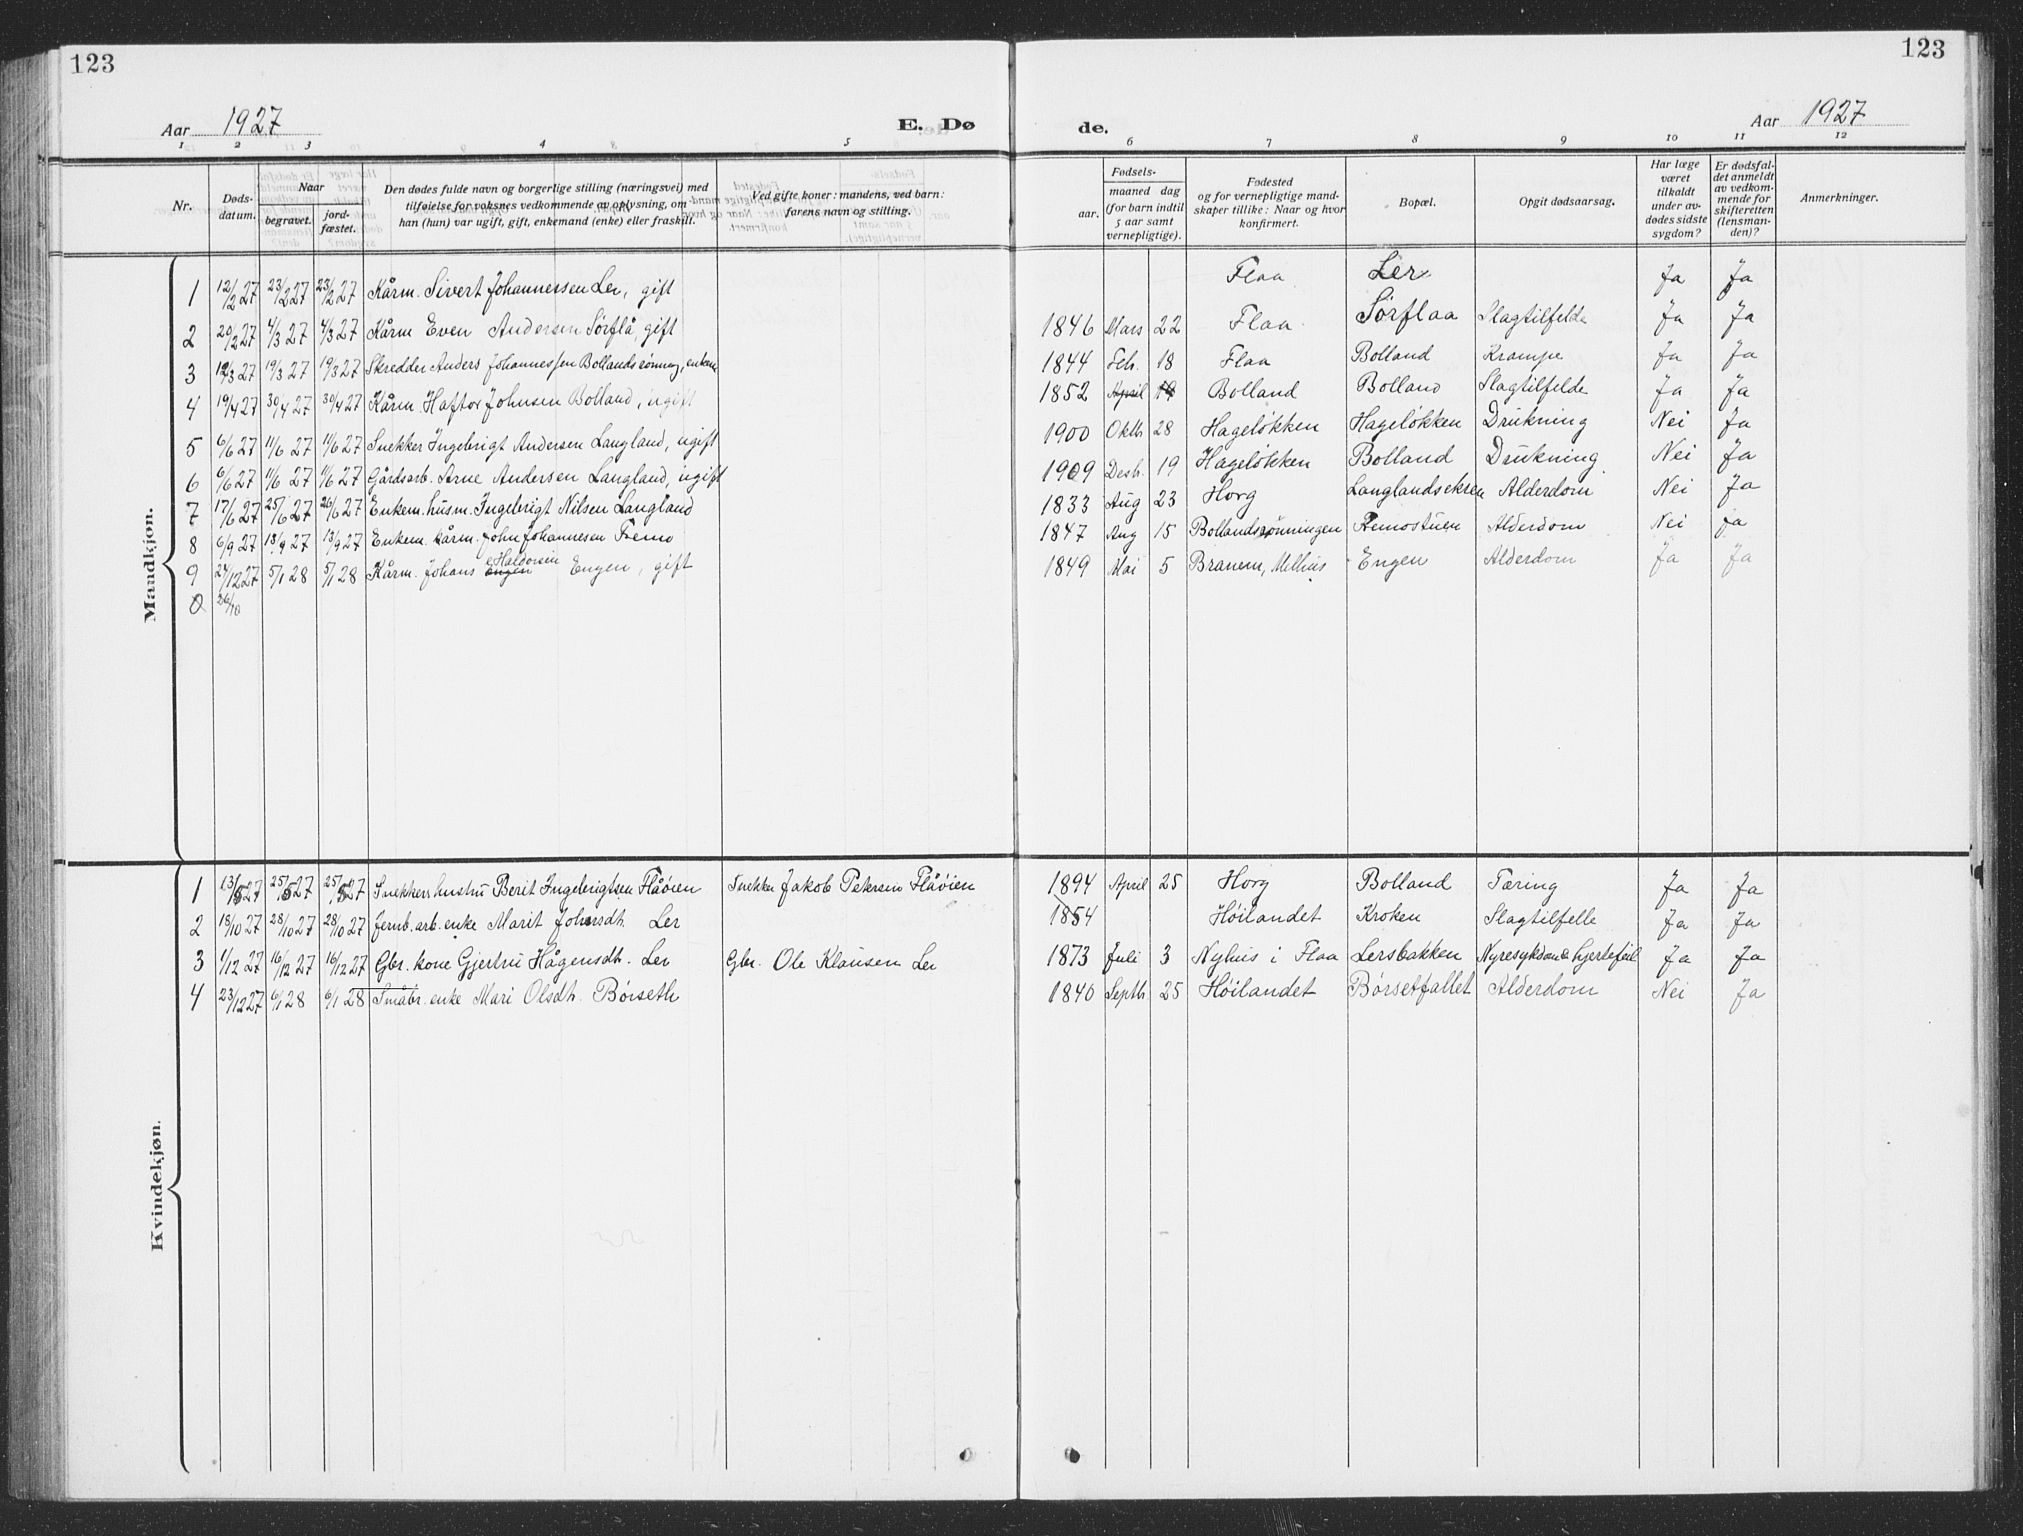 123
123
Aar 1927
E. Dø
de.
Aar 1927
1 2 3 4 5
6 7 8 9 10 11 12
Nr.
Døds-
datum.
Naar
begravet.
jord-
fæstet.
Den dødes fulde navn og borgerlige stilling (næringsvei) med
tilføielse for voksnes vedkommende av oplysning, om
han (hun) var ugift, gift, enkemand (enke) eller fraskilt.
Ved gifte koner: mandens, ved barn:
farens navn og stilling.
Fødsels-
aar.
maaned dag
(for barn indtil
5 aar samt
vernepligtige).
Fødested
og for vernepligtige mand-
skaper tillike: Naar og hvor
konfirmert.
Bopæl.
Opgit dødsaarsag.
Har læge
været
tilkaldt
under av-
dødes sidste
sygdom?
Er dødsfal-
det anmeldt
av vedkom-
mende for
skifteretten
(lensman-
den)?
Anmerkninger.
Mandkjøn.
1 12/2 27 23/2 27 23/2 27 Kårm. Sivert Johannessen Ler, gift Flaa Ler Ja Ja
2 20/2 27 4/3 27 4/3 27 Kårm Even Andersen Sørflå, gift 1846 Mars 22 Flaa Sørflaa Slagtilfelde Ja Ja
3 12/3 27 19/3 27 19/3 27 Skredder Anders Johannessen Bollandsrønning, enkem 1844 Feb. 18 Flaa Bolland Krampe Ja Ja
4 19/4 27 30/4 27 30/4 27 Kårm. Haftor Johnsen Bolland, ugift 1852 April 19 Bolland Bolland Slagtilfelde Ja Ja
5 6/6 27 11/6 27 11/6 27 Snekker Ingebrigt Andersen Langland, ugift 1900 Oktb 28 Hageløkken Hageløkken Drukning Nei Ja
6 6/6 27 11/6 27 11/6 27 Gårdsarb. Arne Andersen Langland, ugift 1909 Desb. 19 Hageløkken Bolland Drukning Nei Ja
7 17/6 27 25/6 27 26/6 27 Enkem. husm. Ingebrigt Nilsen Langland 1833 Aug 23 Horg Langlandsekren Alderdom Nei Ja
8 6/9 27 13/9 27 13/9 27 Enkem. kårm. John Johannesen Fremo 1847 Aug 15 Bollandsrønningen Fremostuen Alderdom Nei Ja
9 24/12 27 5/1 28 5/1 28 Kårm. Johans Engen Haldorsen Engen, gift 1849 Mai 5 Branem, Melhus Engen Alderdom Ja Ja
0 26/10
Kvindekjøn.
1 13/5 27 25/5 27 25/5 27 Snekkers hustru Berit Ingebrigtsen Flåøien Snekker Jakob Petersen Flåøien 1894 April 25 Horg Bolland Tæring Ja Ja
2 18/10 27 28/10 27 28/10 27 Jernb. arb. enke Marit Johnsdh. Ler 1854 Høilandet Kroken Slagtilfelle Ja Ja
3 1/12 27 16/12 27 16/12 27 Gbr. kone Gjertru Hågensdh. Ler Gbr. Ole Klausen Ler 1873 Juli 3 Nyhus i Flaa Lersbakken Nyresykdom & hjertefeil Ja Ja
4 23/12 27 6/1 28 6/1 28 Småbr. enke Mari Olsdh. Børseth 1840 Septb 25 Høilandet Børsetfallet Alderdom Nei Ja